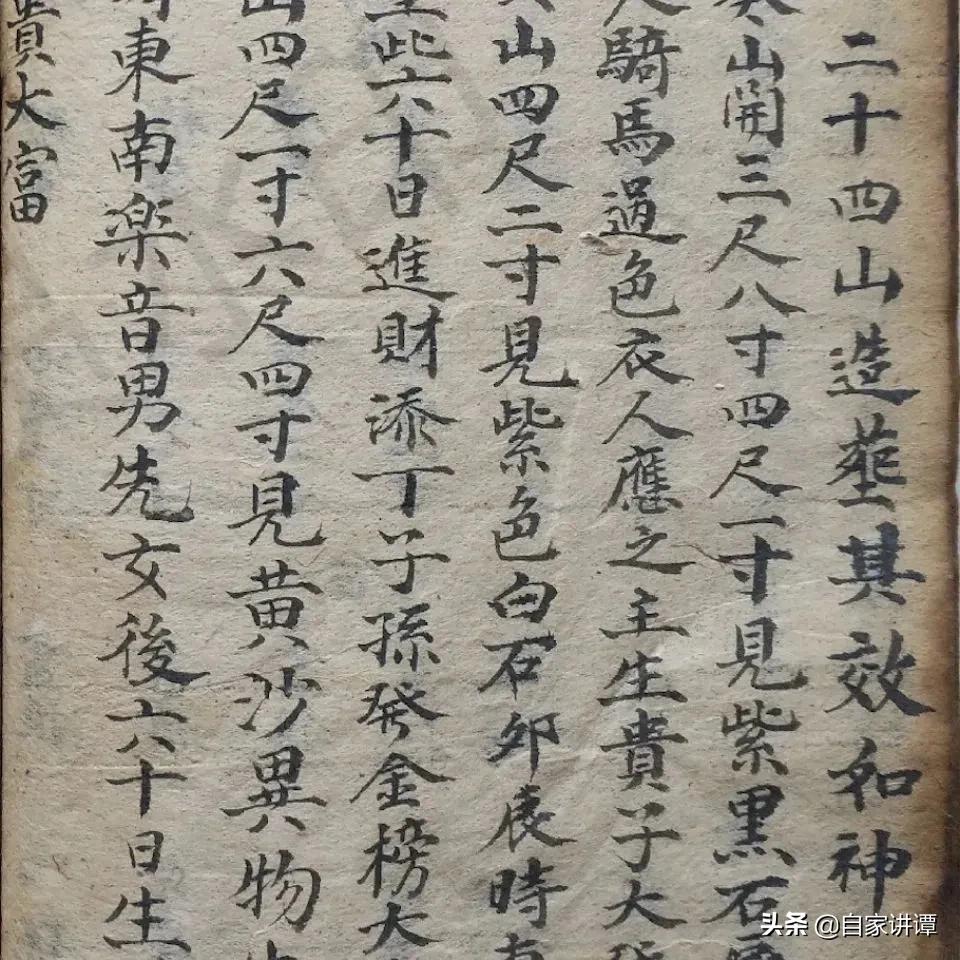 二十四山造葬其效如神
山開三尺八寸四尺一寸見紫黑石
騎馬過色衣人應之主生貴子大
山四尺二寸見紫色白石卯辰時
此六十日進財添丁子孫發金榜大
四尺一寸六尺四寸見黄沙異物
東南楽音男先女後六十日生
貴大富
头条 @自家讲谭